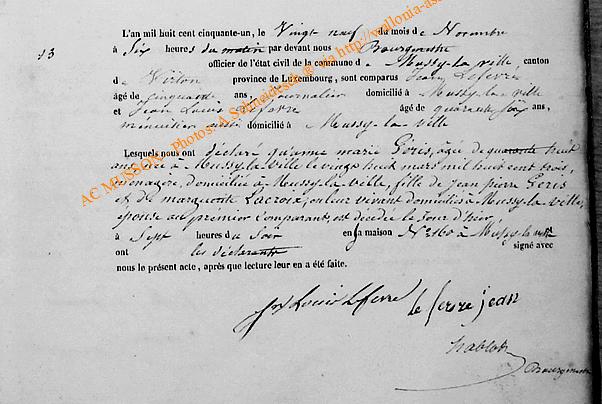 L'an mil huit cent cinquante-un, le Vingt neuf du mois de Novembre
13
à Six heures du matin par devant nous Bourgmestre
officier de l'état civil de la commune d e Mussy-la ville, canton
d e Virton province de Luxembourg, sont comparus Jean Lefevre
âgé de cinquante ans, Journalier domicilié à Mussy-la ville
et Jean Louis Lefevre âgé de quarante six ans,
menuisier aussi domicilié à Mussy-la-ville
Lesquels nous ont déclaré qu'anne marie Geris, agée de quarante huit
ans née à Mussy-la-Ville le vingt huit mars mil huit cent trois,
menagere, domiciliée à Mussy-la-ville, fille de Jean pierre Geris
et de marguerite Lacroix, en leur vivant domiciliés à Mussy-la-ville,
epouse au premier Comparant, est décédé le Jour d'hier,
à Sept heures du Soir en sa maison N° 160 à Mussy-la-ville
ont les déclarants signé avec
nous le présent acte, après que lecture leur en a été faite.
Jn Louis Lefevre le fevre jean
Bourgmestre
AC MUSSON - Photos: A. Schneideser @ via http://wallonia-as